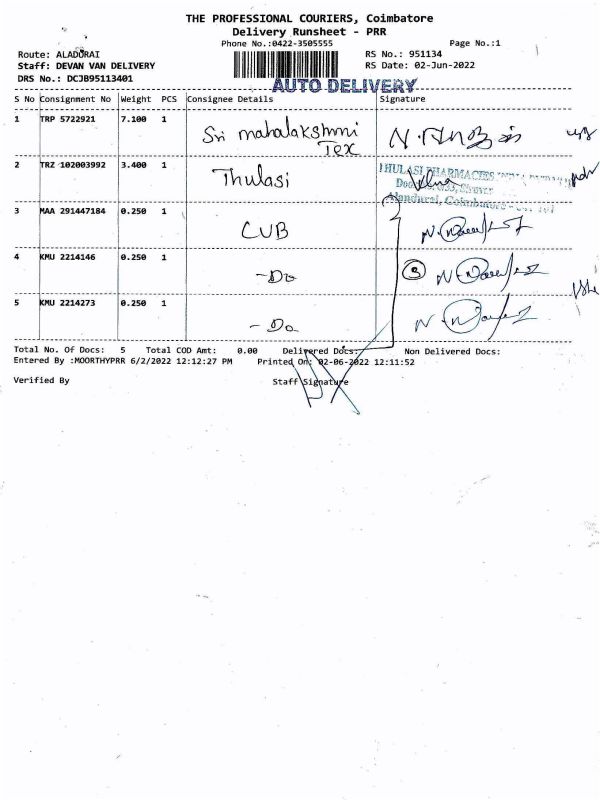 THE PROFESSIONAL COURIERS, Coimbatore
Delivery Runsheet - PRR
Phone No.:0422-3505555 Page No.:1
Route: ALADURAI RS No.: 951134
Staff: DEVAN VAN DELIVERY RS Date: 02-Jun-2022
DRS No.: DCJB95113401
AUTO DELIVERY
S No Consignment No Weight PCS Consignee Details Signature
1 TRP 5722921 7.100 1 Sri mahalakshmi
Tex
2 TRZ 102003992 3.400 1 Thulasi
THULASI PHARMACIES
Coimbatore
3 MAA 291447184 0.250 1 CUB
4 KMU 2214146 0.250 1 -Do 3
5 KMU 2214273 0.250 1 -Do
Total No. Of Docs: 5 Total COD Amt: 0.00 Delivered Docs: Non Delivered Docs:
Entered By :MOORTHYPRR 6/2/2022 12:12:27 PM Printed On: 02-06-2022 12:11:52
Verified By Staff Signature